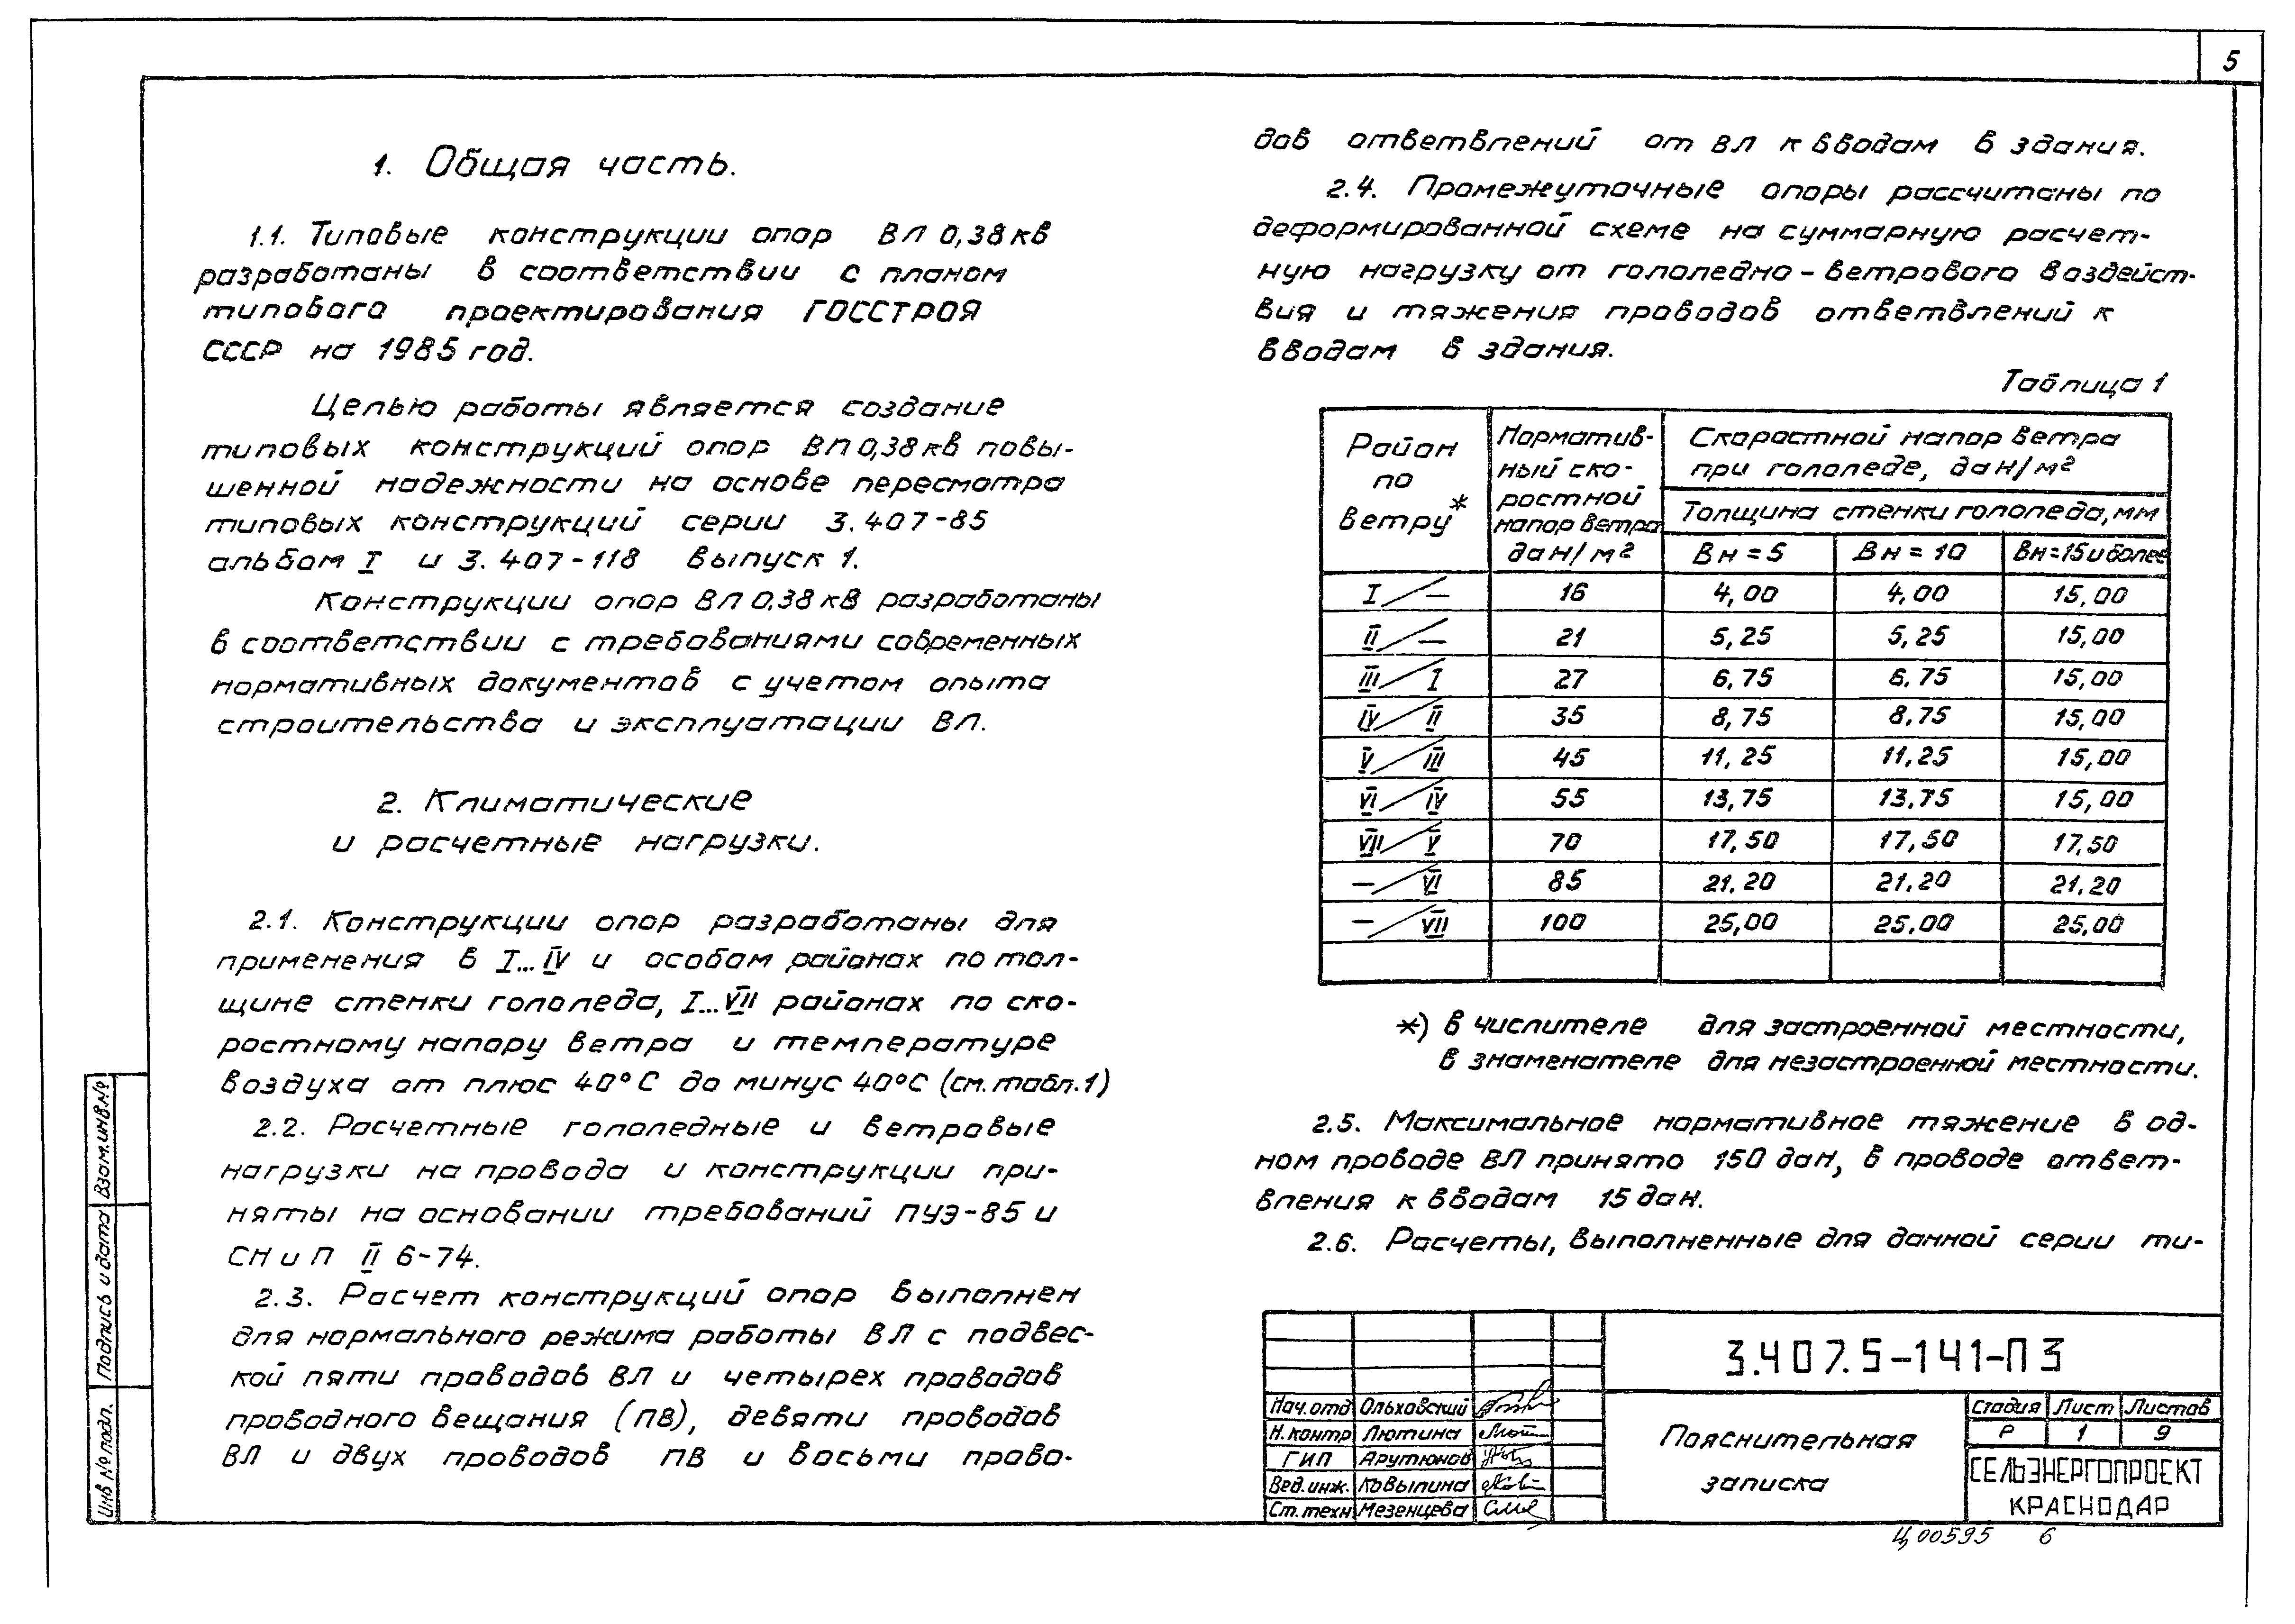 5
1. Общая часть.
1.1. Типовые конструкции опор ВЛ 0,38 кв
разработаны в соответствии с планом
типового проектирования ГОССТРОЯ
СССР на 1985 год.
Целью работы является создание
типовых конструкций опор ВЛ 0,38 кв повы-
шенной надежности на основе пересмотра
типовых конструкций серии 3.407-85
альбом I и 3.407-118 выпуск 1.
Конструкции опор ВЛ 0,38 кв разработаны
в соответствии с требованиями современных
нормативных документов с учетом опыта
строительства и эксплуатации ВЛ.
2. Климатические
и расчетные нагрузки.
2.1. Конструкции опор разработаны для
применения в I...IV и особом районах по тол-
щине стенки гололеда, I...VII районах по ско-
ростному напору ветра и температуре
воздуха от плюс 40°С до минус 40°С (см. табл.1)
2.2. Расчетные гололедные и ветровые
нагрузки на провода и конструкции при-
няты на основании требований ПУЭ-85 и
СН и П II 6-74.
2.3. Расчет конструкций опор выполнен
для нормального режима работы ВЛ с подвес-
кой пяти проводов ВЛ и четырех проводов
проводного вещания (ПВ), девяти проводов
ВЛ и двух проводов ПВ и восьми прово-
дов ответвлений от ВЛ к вводам в здания.
2.4. Промежуточные опоры рассчитаны по
деформированной схеме на суммарную расчет-
ную нагрузку от гололедно-ветрового воздейст-
вия и тяжения проводов ответвлений к
вводам в здания.
Таблица 1
Район по ветру* Норматив-ный ско-ростной напор ветра даН/м² Скоростной напор ветра при гололеде, даН/м²
Толщина стенки гололеда, мм
Вн = 5 Вн = 10 Вн=15 и более
I/— 16 4,00 4,00 15,00
II/— 21 5,25 5,25 15,00
III/I 27 6,75 6,75 15,00
IV/II 35 8,75 8,75 15,00
V/III 45 11,25 11,25 15,00
VI/IV 55 13,75 13,75 15,00
VII/V 70 17,50 17,50 17,50
—/VI 85 21,20 21,20 21,20
—/VII 100 25,00 25,00 25,00
*) в числителе для застроенной местности,
в знаменателе для незастроенной местности.
2.5. Максимальное нормативное тяжение в од-
ном проводе ВЛ принято 150 даН, в проводе ответ-
вления к вводам 15 даН.
2.6. Расчеты, выполненные для данной серии ти-
3.407.5-141-ПЗ
Нач.отд Ольховский
Н.контр Лютина
ГИП Арутюнов
Вед.инж. Ковылина
Ст.техн Мезенцева
Пояснительная
записка
Стадия Лист Листов
Р 1 9
СЕЛЬЭНЕРГОПРОЕКТ
КРАСНОДАР
Ц00595 6
Взам.инв.№
Подпись и дата
Инв № подл.